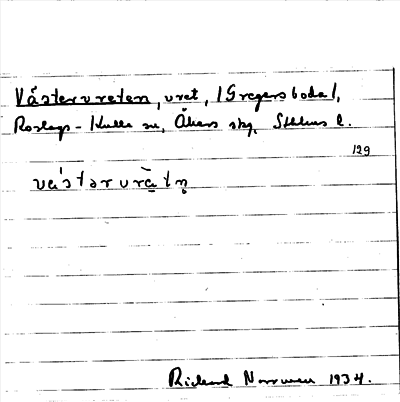 Västervreten, vret, /Gregersboda/,
Roslags-Kulla sn, Åkers skg, Sthlms l.
129
vä́stərvrä̀tn̥
Richard 1934.